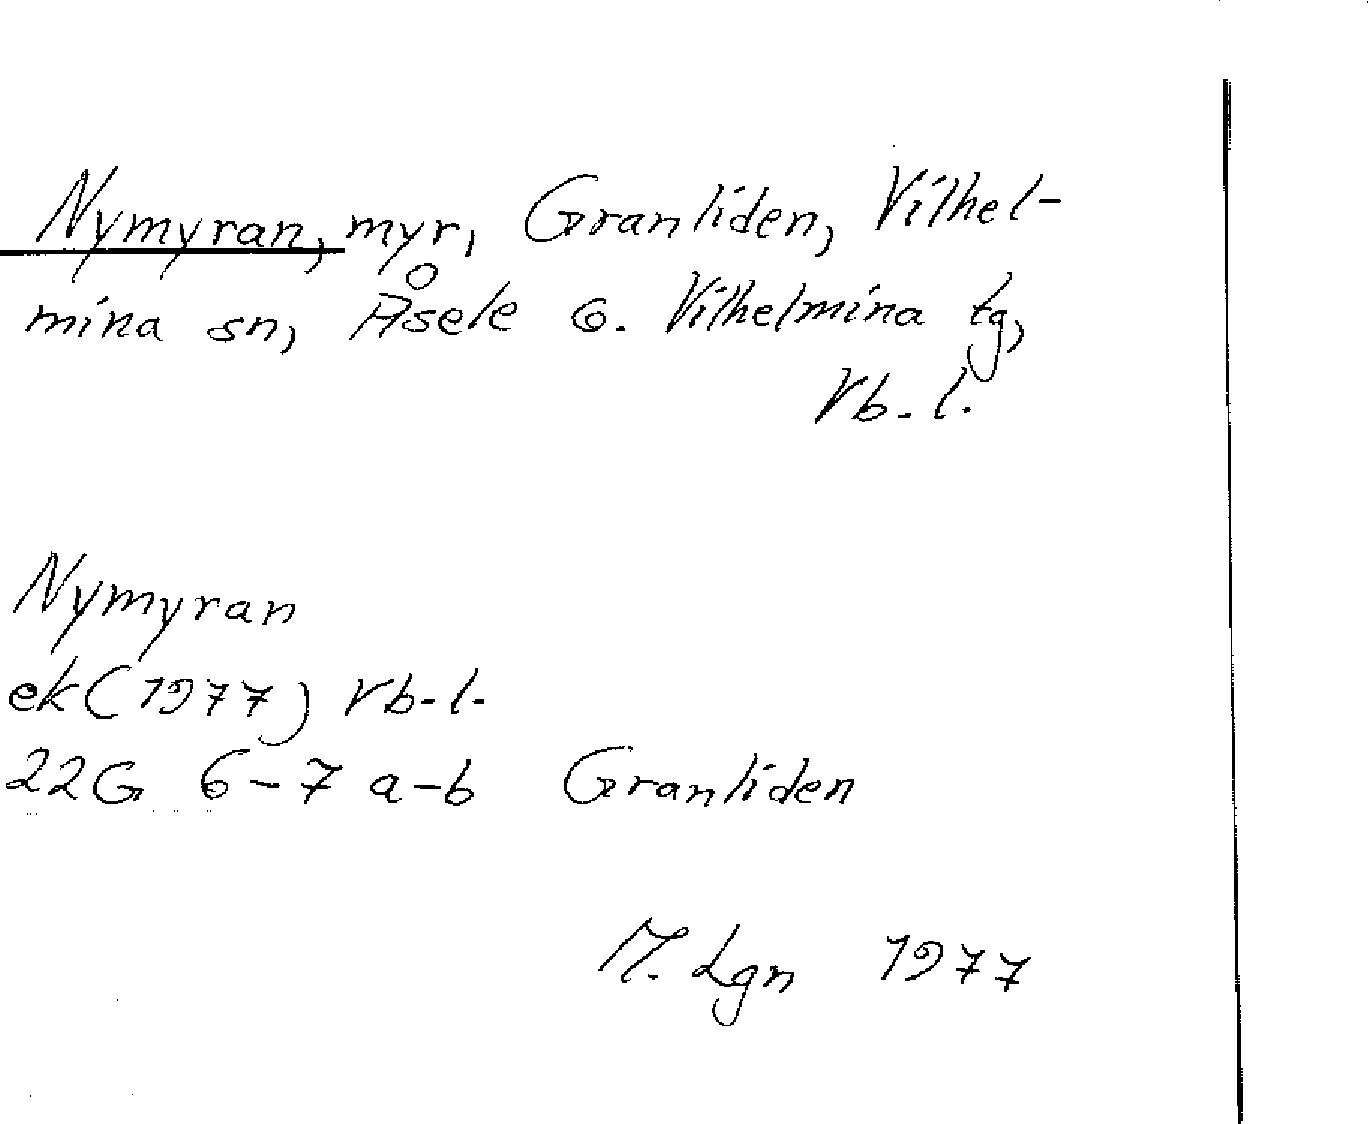 Nymyran, myr, Granliden, Vilhel-
mina sn, Åsele o. Vilhelmina tg,
Vb-l.
Nymyran
ek (1977) Vb-l.
22G 6-7 a-b Granliden
M. Lgn 1977